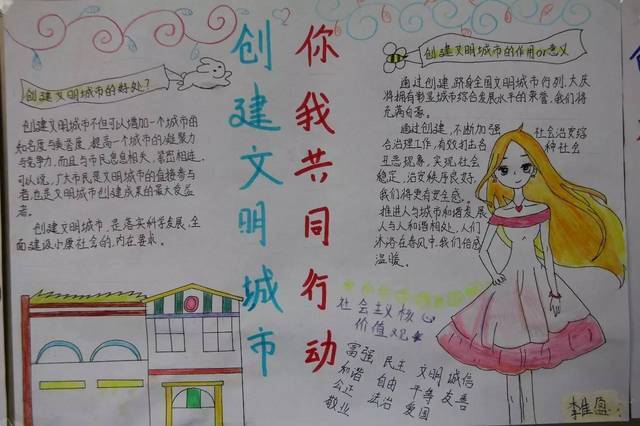 创建文明城市的好处？
创建文明城市不但可以增加一个城市的
知名度与美誉度,提高一个城市的凝聚力
与竞争力,而且与市民息息相关,紧密相连,
可以说,广大市民是文明城市的直接参与
者,也是文明城市创建成果的最大受益
者。
创建文明城市,是落实科学发展,全
面建设小康社会的,内在要求。
创建文明城市
你我共同行动
创建文明城市的作用or意义
通过创建,跻身全国文明城市行列,大庆
将拥有彰显城市综合发展水平的荣誉,我们将
充满自豪。
通过创建,不断加强社会治安综
合治理工作,有效打击各种社会
丑恶现象,实现社会
稳定,治安秩序良好,
我们将更有安全感。
推进人与城市和谐发展
人与人和谐相处,人们
沐浴在春风中,我们倍感
温暖。
社会主义核心
价值观
富强 民主 文明 诚信
和谐 自由 平等 友善
公正 法治 爱国
敬业